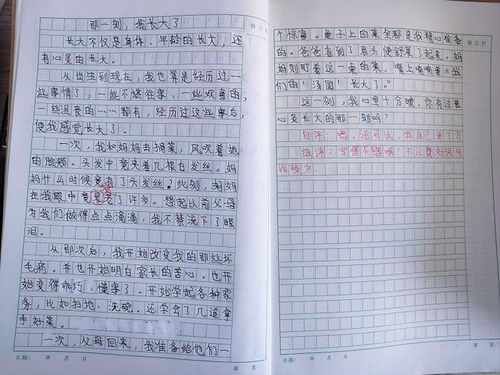 那一刻，我长大了
长大不仅是身体、年龄的长大，还
有心灵的长大。
从出生到现在，我也算是经历过一
些事情了，一些不堪往事，一些欢喜的，
一些沮丧的……都有，经历过这些事后，
使我感觉长大了。
一次，我和妈妈去摘菜，风吹着她
的脸颊。头发中竟夹着几根白发丝。妈
妈什么时候竟有了头发丝。此刻，妈妈
在我眼中竟老了许多。想起以前父母
为我们做得点点滴滴，我不禁流下了眼
泪。
从那次后，我开始改变我的那些坏
毛病。并也开始明白家长的苦心。也开
始变得乖巧、懂事了。开始学起各种家
务，比如扫地、洗碗。还学会了几道拿
手好菜。
一次，父母回来，我准备给他们一
个惊喜。桌子上的菜全都是我精心准备
的。爸爸看到了眉头便舒展了起来。妈
妈则盯着这一桌的菜，嘴上喃喃着：我
们的“汤圆”长大了。”
这一刻，我心里十分暖，你有这般
心灵长大的那一刻吗？
自评：嗯，还可以，我自己
组评：写得不错哦！不过好词句
比较少
日期： 年 月 日
第 页
日期： 年 月 日
第 页